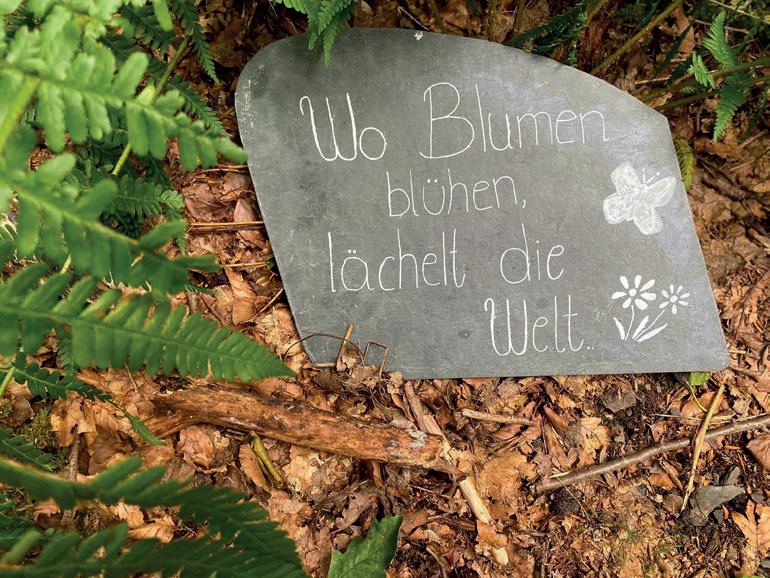 Wo Blumen
blühen,
lächelt die
Welt..